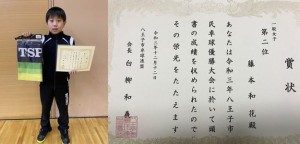 TSP
賞状
一般女子
第二位
藤本和花殿
あなたは令和三年八王子市
民卓球優勝大会に於いて頭
書の成績を収められたので
その栄光をたたえます
令和三年十二月十二日
八王子市卓球連盟
会長 白柳和義